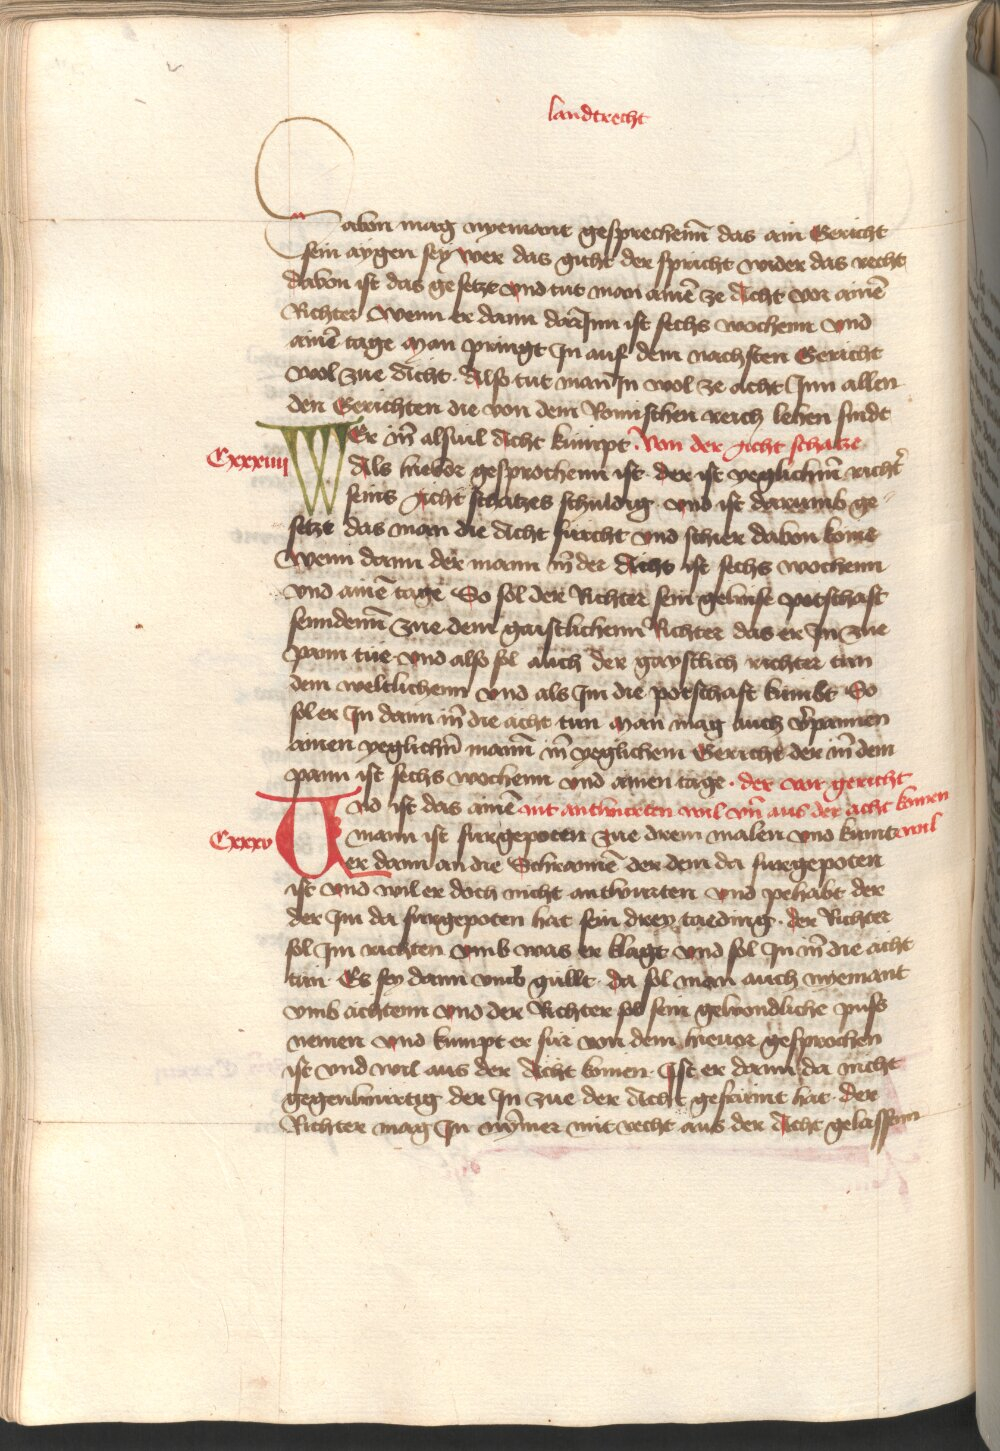 landtrecht
Dabon mag nyemant gesprechenn das ain Gericht
sein aygen sey wer das gicht der spricht wider das recht
dabon ist das gesetze vnd tut man ainē ze Acht vor ainē
Richter wenn er dann darInn ist sechs wochenn vnd
ainē tage Man pringt In auf dem nachsten Gericht
wol zue Acht. Also tut man In wol ze acht Inn allen
den Gerichten die von dem Romischen reich lehen sindt
WEr in alsuil Acht kumpt. Von der Acht schatze
Cxxxiiij
Als hieuor gesprochenn ist der ist yeglichm̄ richt̄
seins Acht schatzes schuldig vnd ist darumb ge
setzt das man die Acht furcht vnd schier dabon kome
wenn dann der mann in der Acht ist sechs wochenn
vnd ainē tage So sol der Richter sein gewise potschaft
senndenn zue dem gaistlichenn Richter das er In zue
pann tue vnd also sol auch der gaystlich richter tun
dem weltlichenn vnd als Im die potschaft kumbt So
sol er In dann in die acht tun Man mag auch v̄pannen
ainen yeglichn̄ mann in yeglichem Gericht der in dem
pann ist sechs wochenn vnd ainen tage. der vor gericht
Vnd ist das ainē nit antwurten wil vn̄ aus der acht komen
Cxxxv
mann ist furgepoten zue drein malen vnd kumt wil
er dann an die Schrannē der dem da furgepoten
ist vnd wil er doch nicht antwurten vnd pehabt der
der Im da furgepoten hat sein drey taeding. der Richter
sol Im richten vmb was er klagt vnd sol In in die acht
tun. Es sey dann vmb gullt. da sol man auch nyemant
vmb achtenn vnd der Richter sol sein gewondliche puss
nemen vnd kumpt er fur von dem hieuor gesprochen
ist vnd wil aus der Acht komen. Ist er dann da nicht
gegenwurtig der In zue der Acht gefrumt hat. der
Richter mag In nȳmer mit recht aus der Acht gelassenn